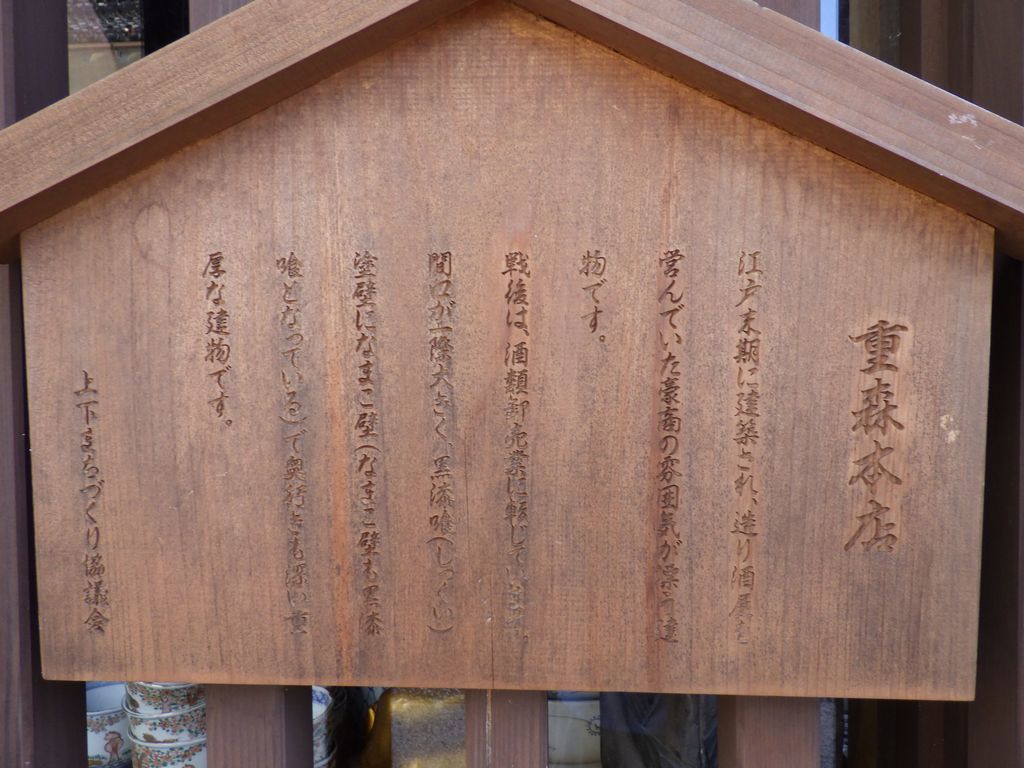 重森本店
江戸末期に建築され、造り酒屋を
営んでいた豪商の雰囲気が漂う建
物です。
戦後は、酒類卸売業に転じています。
間口が一際大きく、黒漆喰(しっくい)
塗壁になまこ壁(なまこ壁も黒漆
喰となっている)で奥行きも深い重
厚な建物です。
上下まちづくり協議会